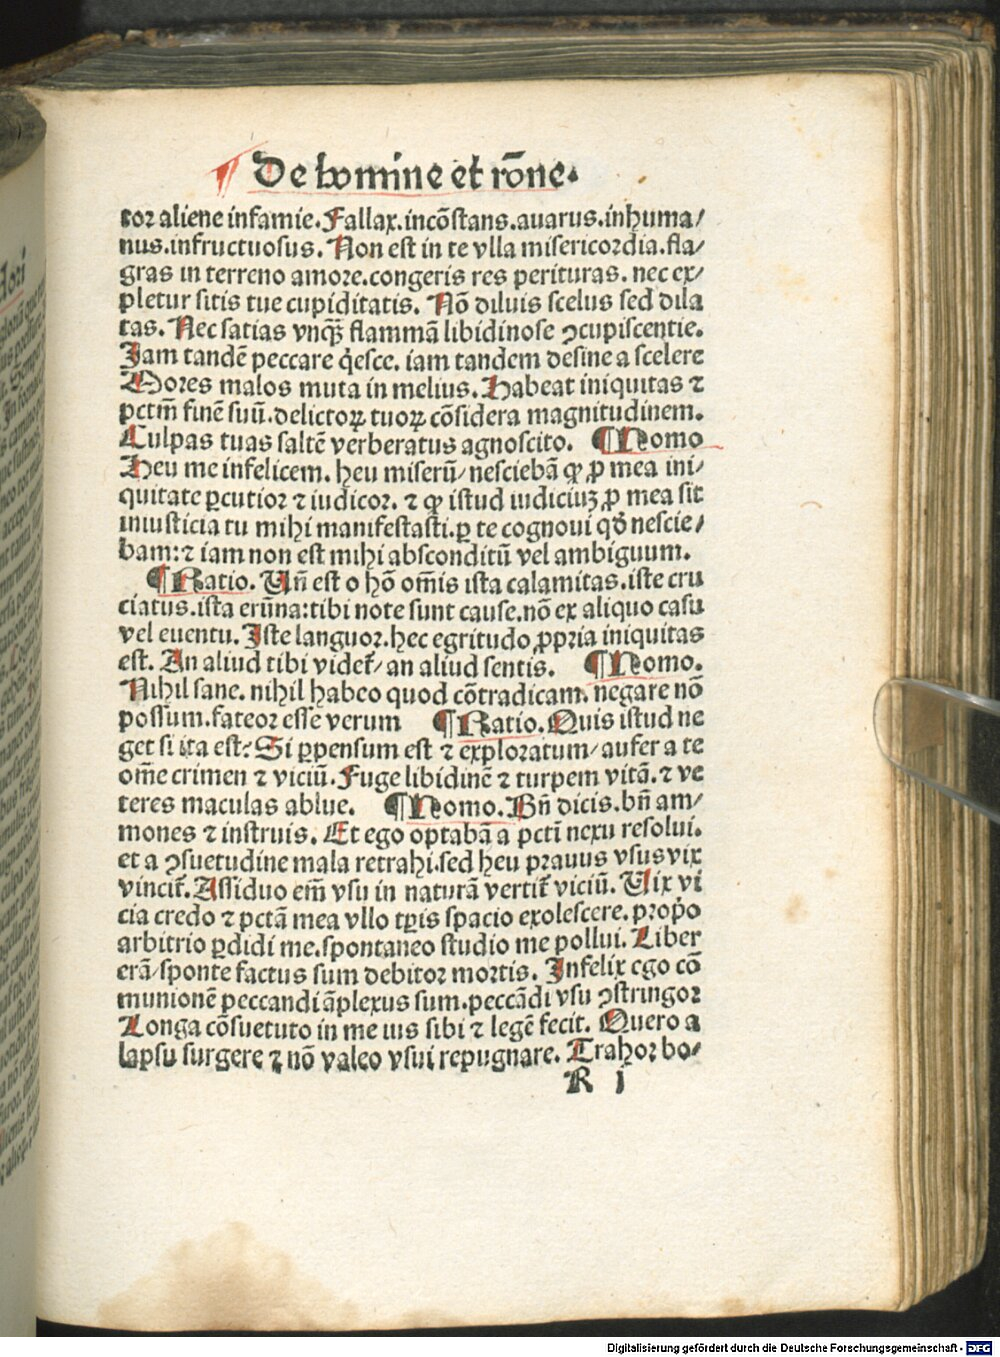 ¶ De homine et rōne.
tor aliene infamie. Fallax. incōstans. auarus. inhuma/
nus. infructuosus. Non est in te vlla misericordia. fla/
gras in terreno amore. congeris res perituras. nec ex/
pletur sitis tue cupiditatis. Nō diluis scelus sed dila
tas. Nec satias vnqꝫ flammā libidinose ꝯcupiscentie.
Jam tandē peccare q̇esce. iam tandem desine a scelere
Mores malos muta in melius. Habeat iniquitas ⁊
pctm̄ finē suū. delictoꝝ tuoꝝ cōsidera magnitudinem.
Culpas tuas saltē verberatus agnoscito. ¶ Homo
Heu me infelicem. heu miserū/ nesciebā ꝙ ꝓ mea ini/
quitate ꝑcutior ⁊ iudicor. ⁊ ꝙ istud iudiciuꝫ ꝓ mea sit
iniusticia tu mihi manifestasti. ꝑ te cognoui qd̄ nescie/
bam: ⁊ iam non est mihi absconditū vel ambiguum.
¶ Ratio. Un̄ est o hō om̄is ista calamitas. iste cru
ciatus. ista erūna: tibi note sunt cause. nō ex aliquo casu
vel euentu. Iste languor. hec egritudo ꝓpria iniquitas
est. An aliud tibi videt᷑/ an aliud sentis. ¶ Homo.
Nihil sane. nihil habeo quod cōtradicam. negare nō
possum. fateor esse verum ¶ Ratio. Quis istud ne
get si ita est: Si ꝑpensum est ⁊ exploratum/ aufer a te
om̄e crimen ⁊ viciū. Fuge libidinē ⁊ turpem vitā. ⁊ ve
teres maculas ablue. ¶ Homo. Bn̄ dicis. bn̄ am/
mones ⁊ instruis. Et ego optabā a pcti nexu resolui.
et a ꝯsuetudine mala retrahi. sed heu prauus vsus vix
vincit᷑. Assiduo em̄ vsu in naturā vertit᷑ viciū. Vix vi
cia credo ⁊ pctā mea vllo tꝑis spacio exolescere. prop̄o
arbitrio ꝑdidi me. spontaneo studio me pollui. Liber
erā/ sponte factus sum debitor mortis. Infelix ego cō
munionē peccandi āplexus sum. peccādi vsu ꝯstringor
Longa cōsuetuto in me ius sibi ⁊ legē fecit. Quero a
lapsu surgere ⁊ nō valeo vsui repugnare. Trahor ho/
R j
Digitalisierung gefördert durch die Deutsche Forschungsgemeinschaft - DFG